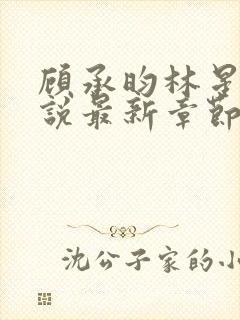 顾承昀林星
说最新章节
沈公子家的小